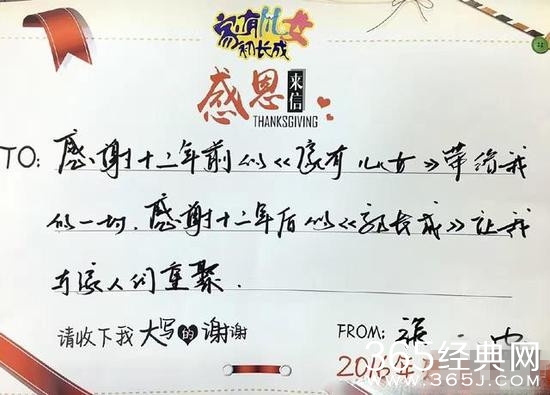 家有儿女
初长成
感恩来信
THANKSGIVING
TO: 感谢十二年前的《家有儿女》带给我
的一切.感谢十二年后的《初长成》让我
与家人们重聚.
请收下我大写的谢谢 FROM: 张一山
2016年
365经典网
WWW.365J.COM